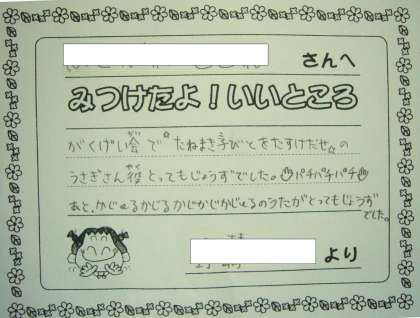 さんへ
みつけたよ！いいところ
がくげい会で“たねまき子びとをたすけだせ”の
うさぎさん役とってもじょうずでした。パチパチパチ
あと、かじるかじるかじかじかじるのうたがとってもじょうず
でした。
より